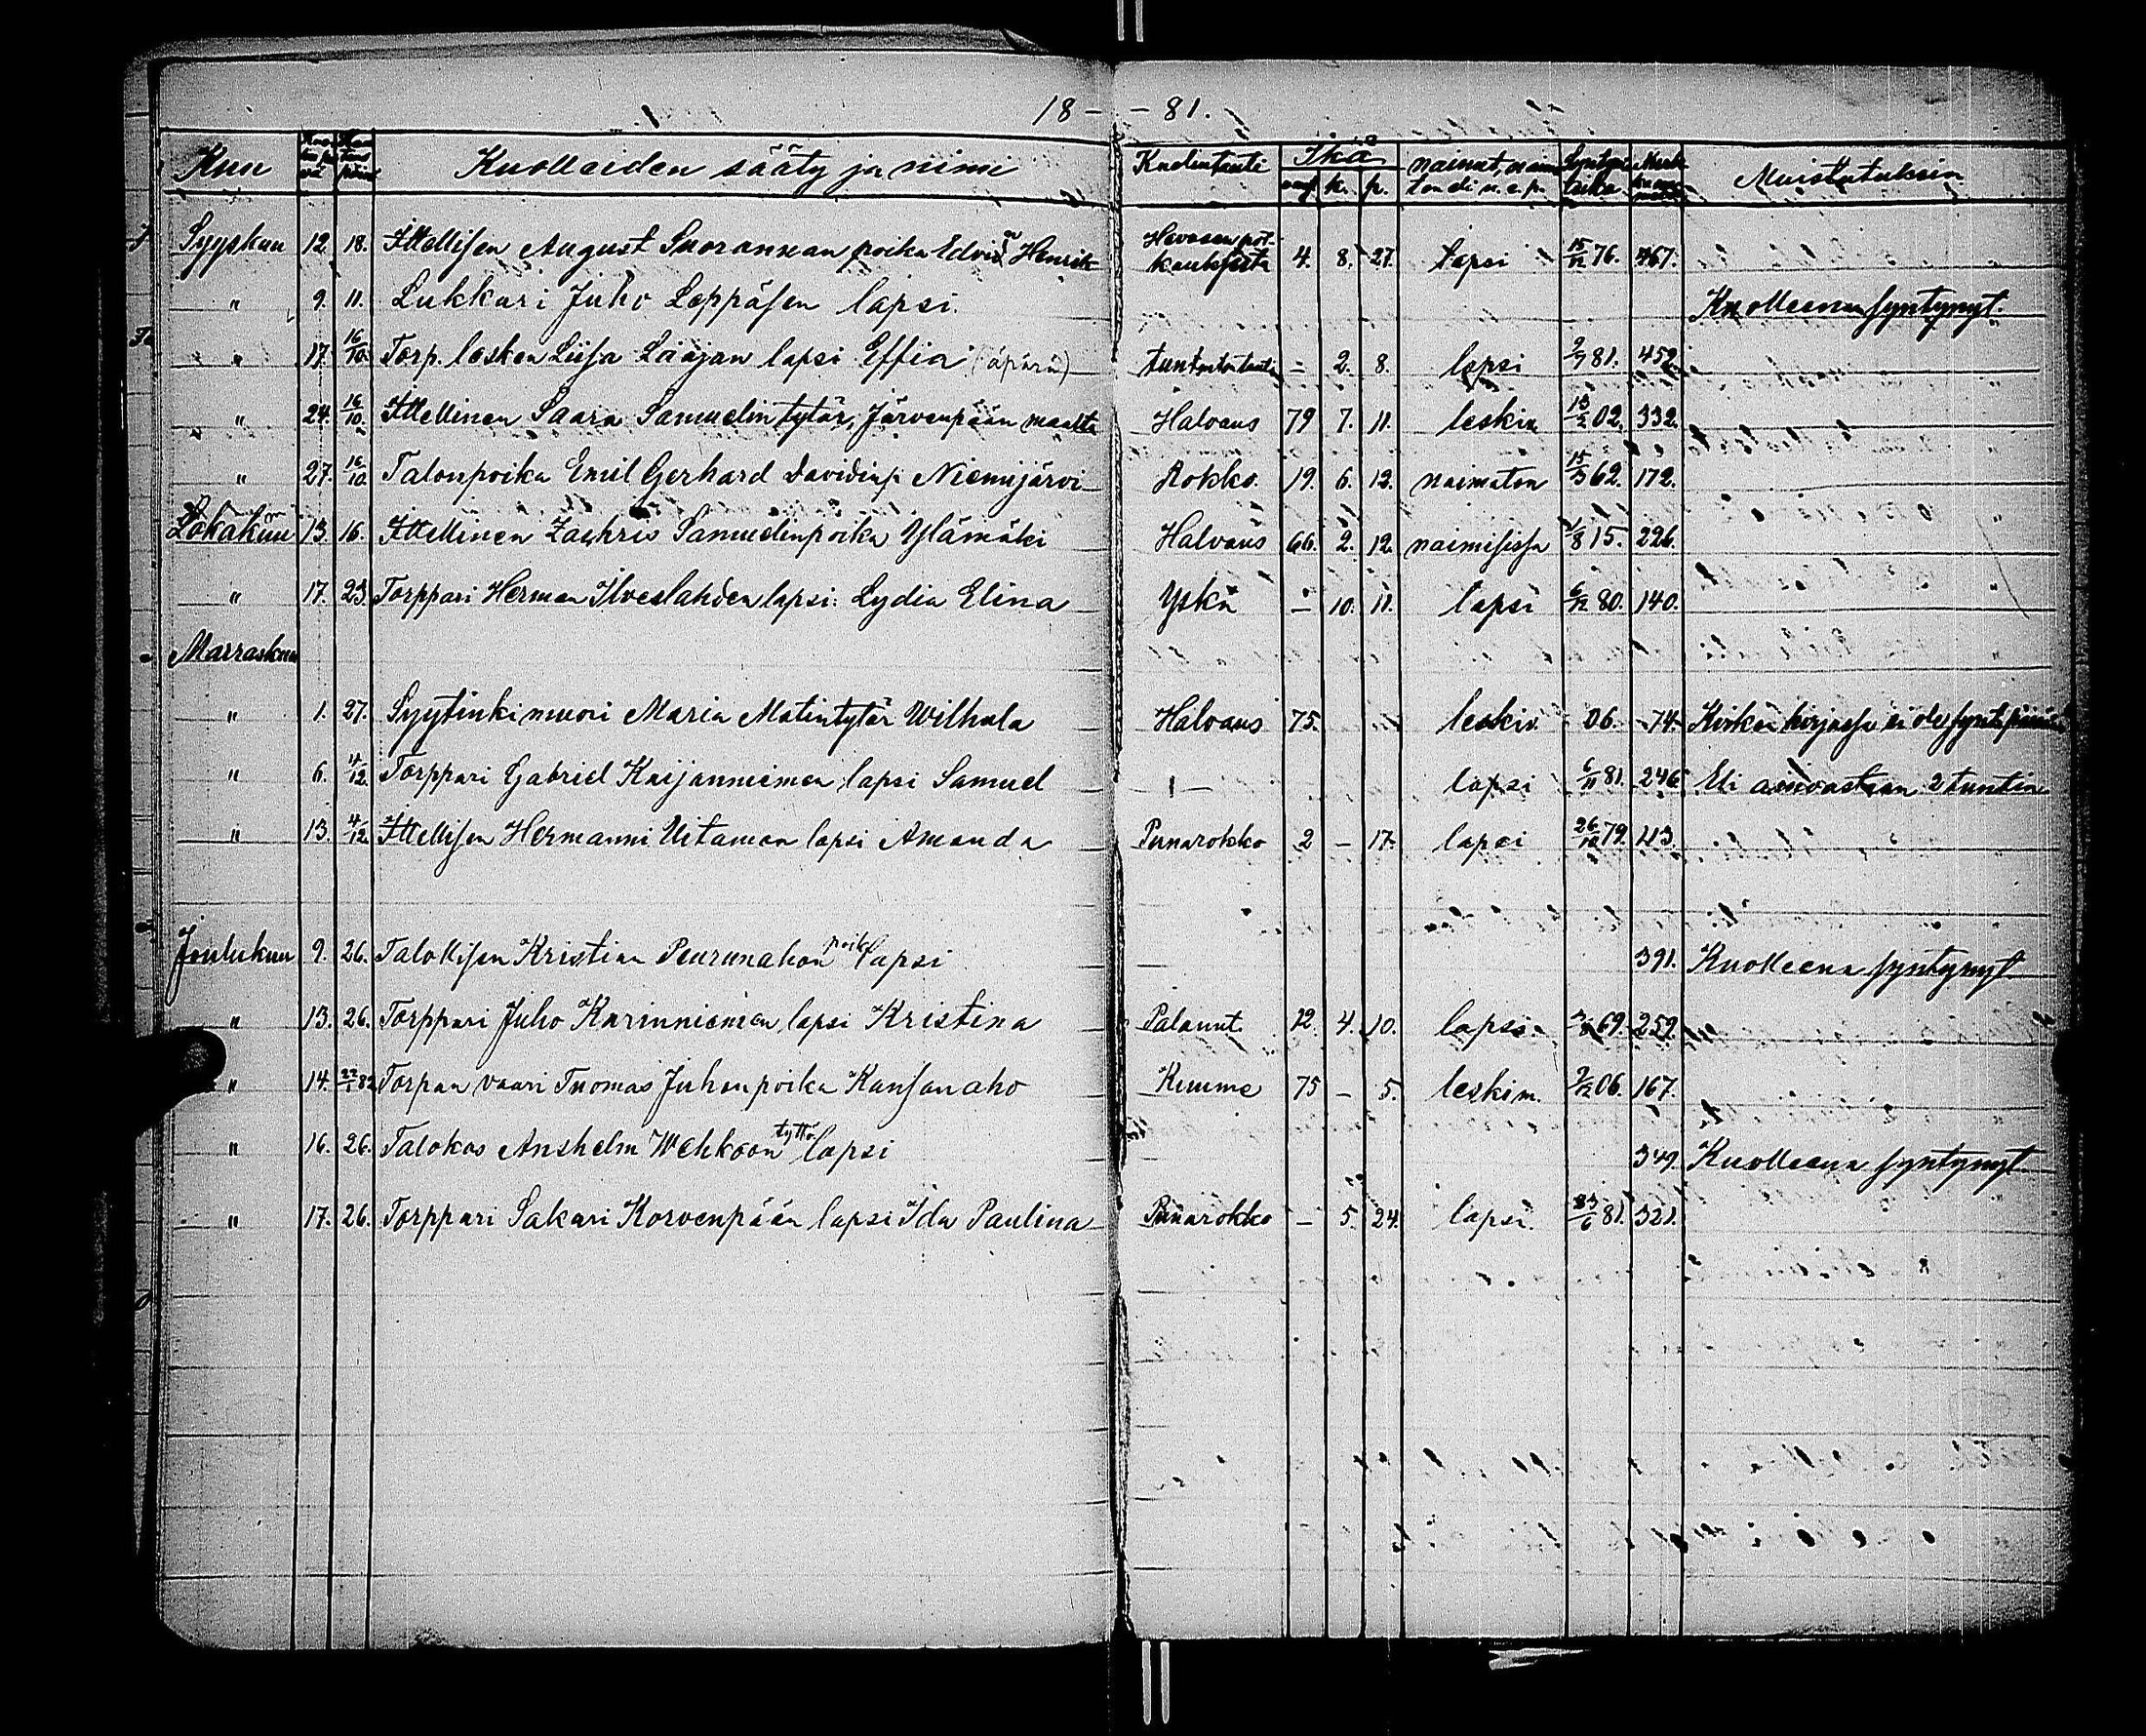 18 - - 81.
Kuu Kuolleiden sääty ja nimi Kuolintauti Ikä p. Muistutuksia
Syyskuu 12. 18. Ittellisen August Suorannan poika Henrik Hevosen pot- 4. 8. 27. lapsi 15/12 76. 467.
" 9. 11. Lukkari Juho Leppäsen lapsi. Kuolleena syntynyt.
" 17. 16/10. Torp. lesken Liisa Laajan lapsi Effia (äpärä) tuntematon tauti - 2. 8. lapsi 9/7 81. 452.
" 24. 16/10. Ittellinen Saara Samuelin tytär, Järvenpään maalta Halvaus 79 7. 11. leskin 13/2 02. 332.
" 27. 16/10 Talonpoika Emil Gerhard Davidinp. Niemijärvi Rokko. 19. 6. 12. naimaton 15/3 62. 172.
Lokakuu 13. 16. Ittellinen Zachris Samuelinpoika Ylämäki Halvaus 66. 2. 12. naimisissa 1/8 15. 226.
" 17. 23. Torppari Herman Ilveslahden lapsi: Lydia Elina Yskä - 10. 11. lapsi 6/12 80. 140.
Marraskuu
" 1. 27. Syytinkimuori Maria Matintytär Wilhula Halvaus 75. leskiv. 06. 74. Kirkon kirjassa ei ole synt. päivää
" 6. 4/12. Torppari Gabriel Kaijanniemen lapsi Samuel - 1 - lapsi 6/11 81. 246. Eli ainoastaan 2 tuntia
" 13. 4/12. Ittellisen Hermanni Uitamon lapsi Amanda Punarokko 2 - 17. lapsi 26/10 79. 413.
Joulukuu 9. 26. Talollisen Kristian Peurunahon poika lapsi - 391. Kuolleena syntynyt
" 13. 26. Torppari Juho Karinniemen lapsi Kristina Palanut. 12. 4. 10. lapsi. 3/8 69. 259.
" 14. 22/1 82 Torpan vaari Tuomas Juhonpoika Kansanaho Kumme 75 - 5. leskim. 9/12 06. 167.
" 16. 26. Talokas Anshelm Wehkoon tyttö lapsi 349. Kuolleena syntynyt
" 17. 26. Torppari Sakari Korvenpään lapsi Ida Paulina Punarokko - 5. 24. lapsi. 23/6 81. 321.